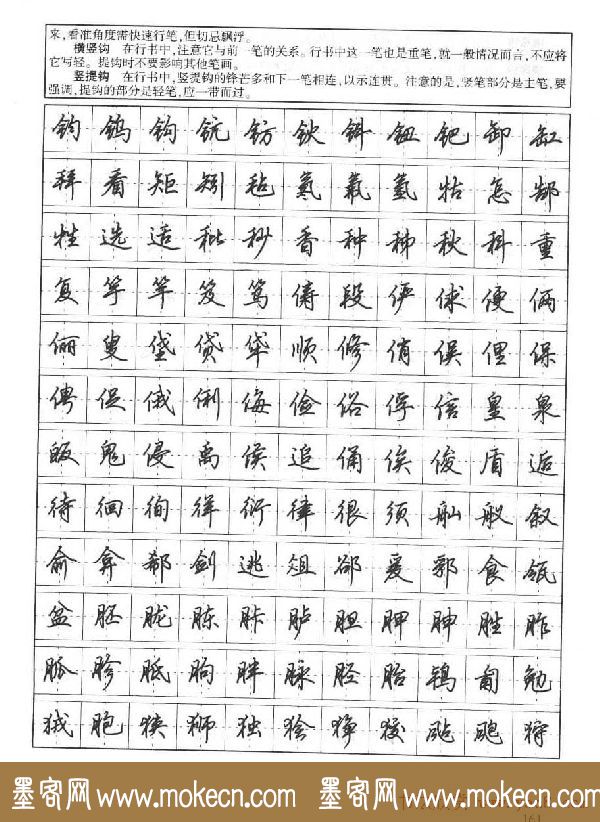 来，看准角度需快速行笔，但切忌飘浮。
横竖钩 在行书中，注意它与前一笔的关系。行书中这一笔也是重笔，就一般情况而言，不应将
它写轻。提钩时不要影响其他笔画。
竖提钩 在行书中，竖提钩的锋芒多和下一笔相连，以示连贯。注意的是，竖笔部分是主笔，要
强调，提钩的部分是轻笔，应一带而过。
钧 钨 钩 钪 钫 钬 钭 钮 钯 卸 缸
拜 看 矩 矧 毡 氡 氟 氢 牯 怎 郜
牲 选 适 秕 秒 香 种 秭 秋 科 重
复 竽 竿 笈 笃 俦 段 俨 俅 便 俩
俪 叟 垡 贷 牮 顺 修 俏 俣 俚 保
俜 促 俄 俐 侮 俭 俗 俘 信 皇 泉
皈 鬼 侵 禹 侯 追 俑 俟 俊 盾 逅
待 徊 徇 徉 衍 律 很 须 舢 舣 叙
俞 弇 郗 剑 逃 俎 郤 爰 郛 食 瓴
盆 胚 胧 胨 胩 胪 胆 胛 胂 胜 胙
胍 胗 胝 朐 胖 脉 胫 胎 鸨 匍 勉
狨 胞 狭 狮 独 狯 狰 狡 飐 飑 狩
墨客网 www.mokecn.com 墨客网 www.mokecn.com
161